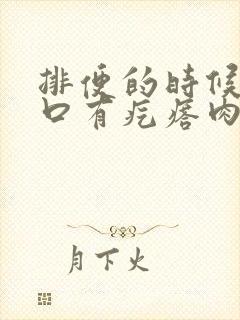 排便的時候
口有疙瘩肉
月下火